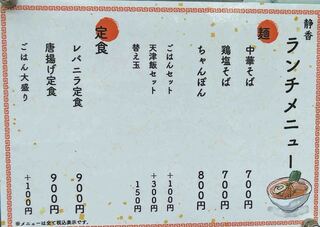 静香
ランチメニュー
麺
中華そば 700円
鶏塩そば 700円
ちゃんぽん 800円
ごはんセット +100円
天津飯セット +300円
替え玉 150円
定食
レバニラ定食 900円
唐揚げ定食 900円
ごはん大盛り +100円
※メニューは全て税込表示です。